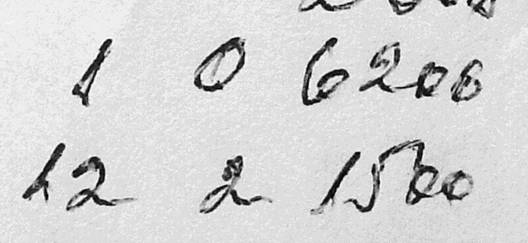 1 0 6200
12 2 1500